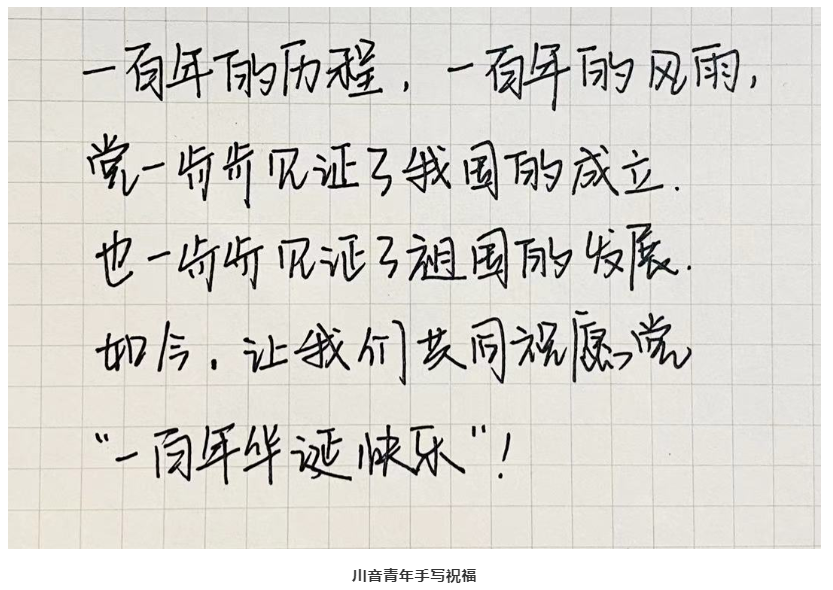 一百年的历程，一百年的风雨，
党一步步见证了我国的成立.
也一步步见证了祖国的发展.
如今，让我们共同祝愿党
“一百年华诞快乐”！
川音青年手写祝福